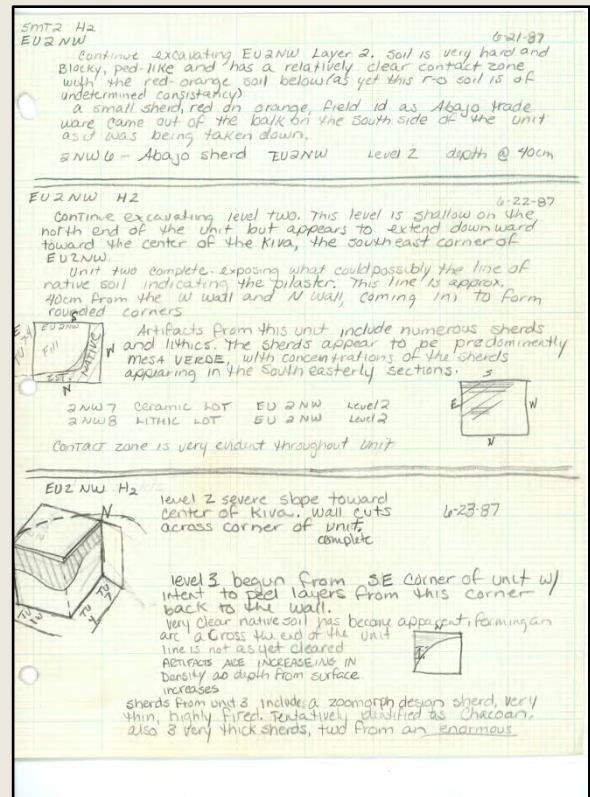 5MT2 H2
EU2NW 6-21-87
Continue excavating EU2NW Layer 2. Soil is very hard and
Blocky, ped-like and has a relatively clear contact zone
with the red-orange soil below (as yet this r-o soil is of
undetermined consistancy)
a small sherd, red on orange, field id as Abajo trade
ware came out of the balk on the south side of the unit
as it was being taken down.
2NW6 - Abajo sherd EU2NW Level 2 depth @ 40cm
EU2NW H2 6-22-87
Continue excavating level two. This level is shallow on the
north end of the unit but appears to extend downward
toward the center of the Kiva, the southeast corner of
EU2NW.
Unit two complete - exposing what could possibly the line of
native soil indicating the pilaster. This line is approx.
40cm from the W wall and N Wall, coming in to form
rounded corners
S
EU2NW
E
Fill
NATIVE
W
EST.
N
Artifacts from this unit include numerous sherds
and lithics. The sherds appear to be predominently
MESA VERDE, with concentrations of the sherds
appearing in the South easterly sections.
S
E W
N
2NW7 Ceramic LOT EU 2NW Level 2
2NW8 LITHIC LOT EU 2NW Level 2
Contact zone is very evident throughout unit
EU2 NW H2
N
level 2 severe slope toward
center of Kiva. Wall cuts 6-23-87
across corner of unit.
complete
level 3 begun from SE Corner of unit w/
intent to peel layers from this corner
back to the wall.
very clear native soil has become apparent, forming an
arc across the end of the unit
line is not as yet cleared
N
ARTIFACTS ARE INCREASEING IN
Density as depth from surface
increases
sherds from unit 3 include a zoomorph design sherd, very
thin, highly fired. Tentatively identified as Chacoan.
also 3 very thick sherds, two from an enormous